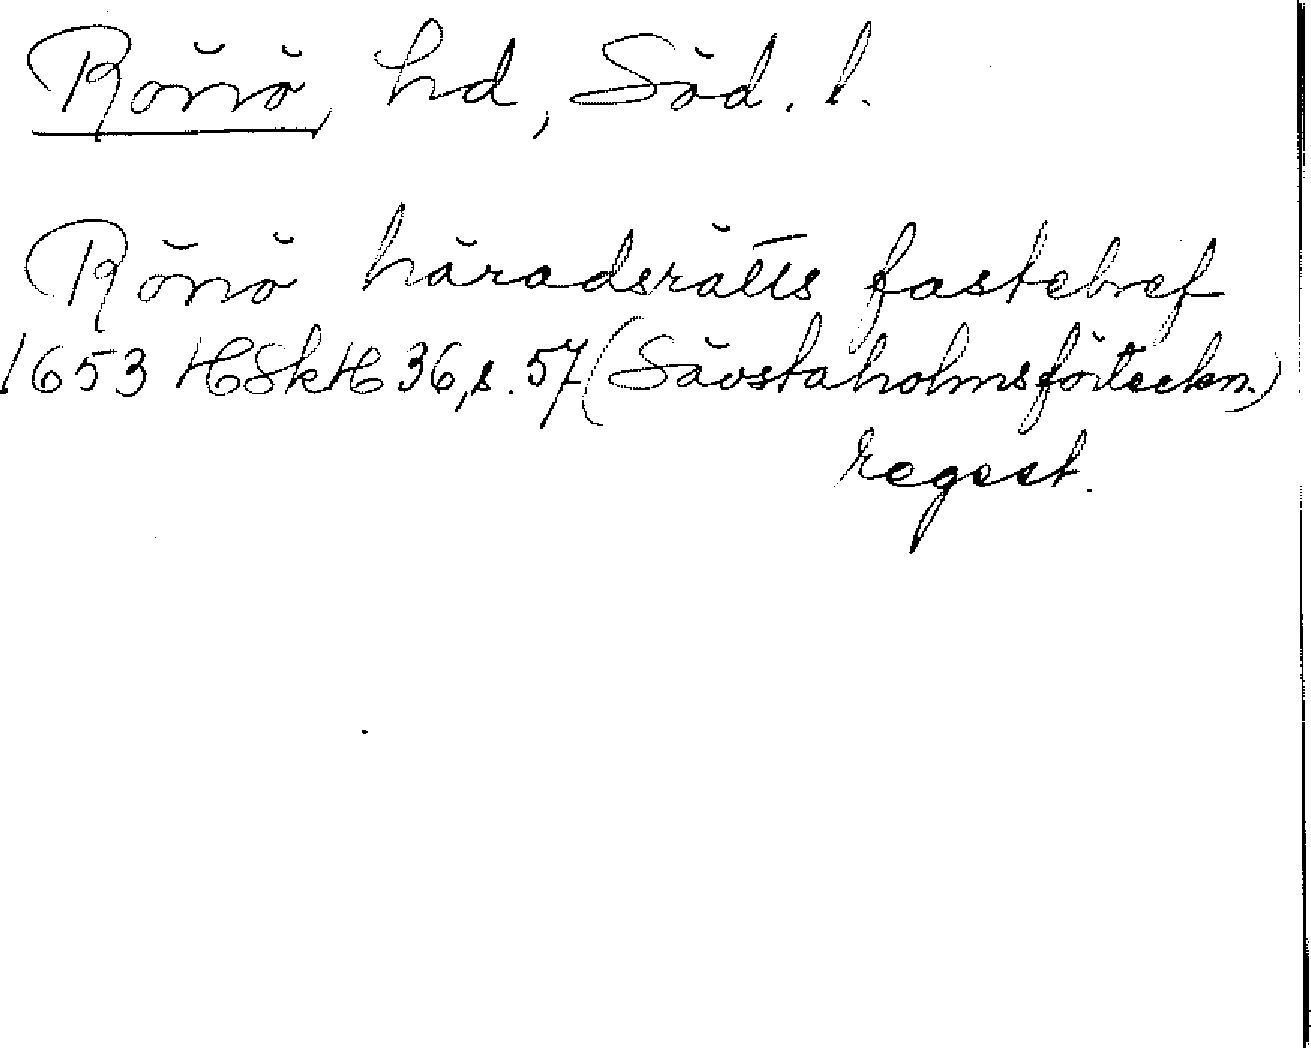 Rönö, hd, Söd. l.
Rönö häradsrätts fastebref
1653 HSkH 36, s. 57 (Sävstaholmsförteckn.)
regest.